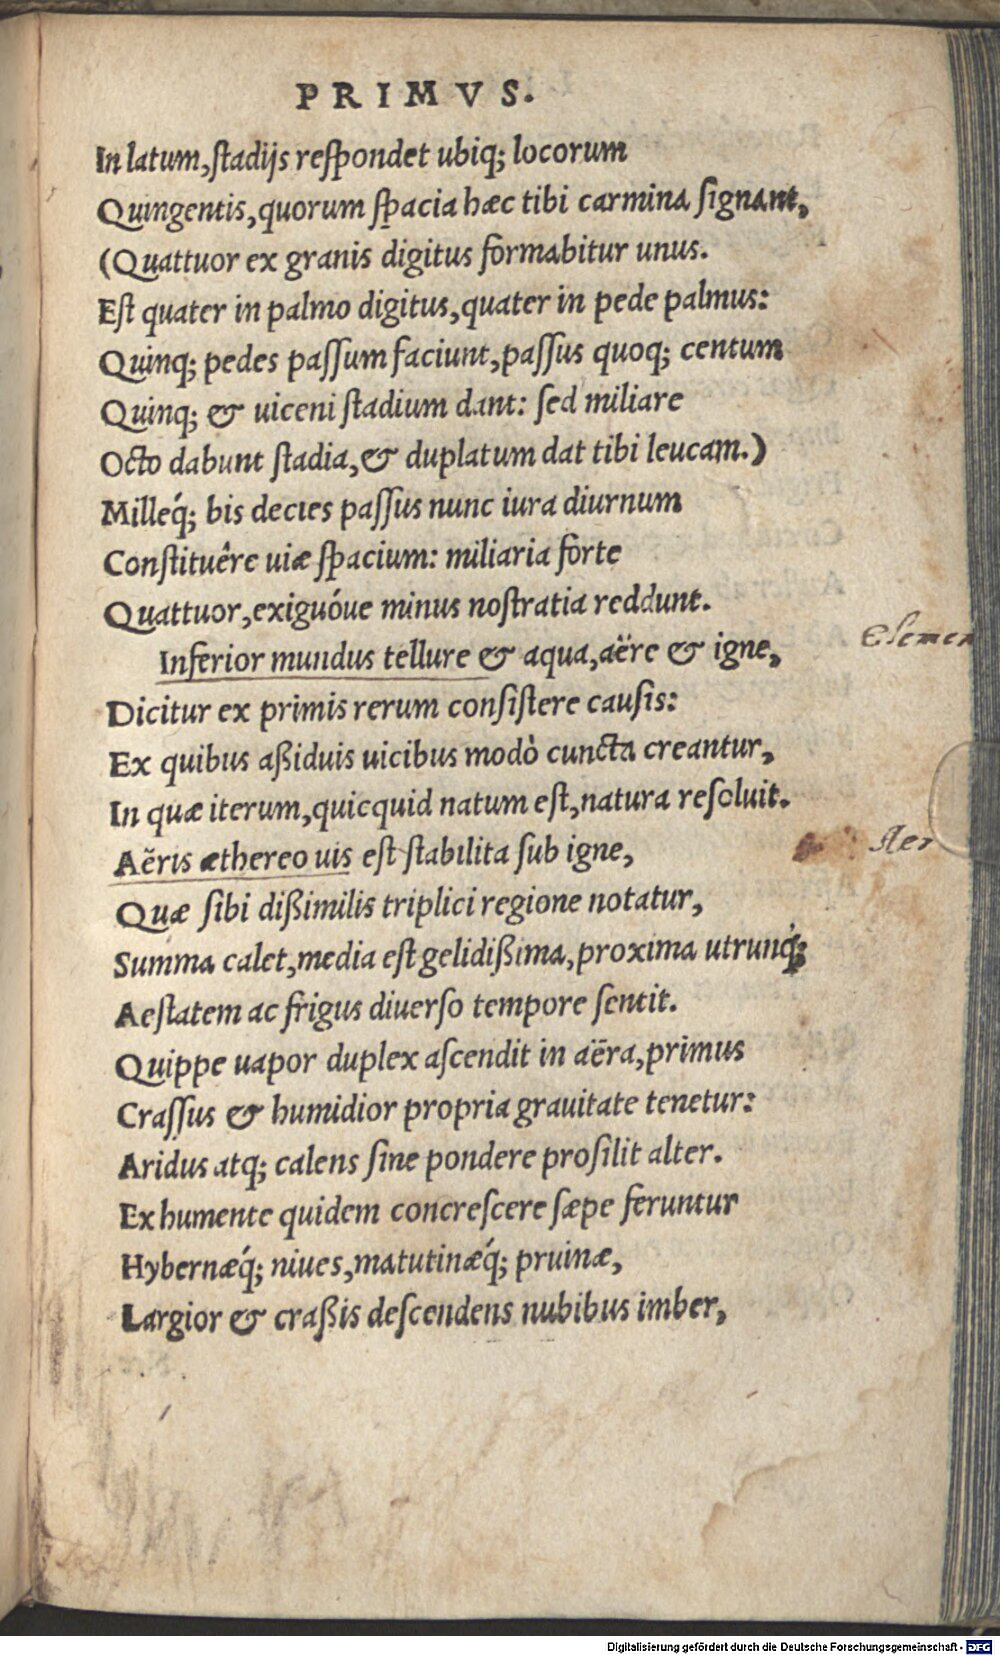 PRIMVS.
In latum, stadijs respondet ubiq; locorum
Quingentis, quorum spacia hæc tibi carmina signant,
(Quattuor ex granis digitus formabitur unus.
Est quater in palmo digitus, quater in pede palmus:
Quinq; pedes passum faciunt, passus quoq; centum
Quinq; & uiceni stadium dant: sed miliare
Octo dabunt stadia, & duplatum dat tibi leucam.)
Milleq́; bis decies passus nunc iura diurnum
Constituêre uiæ spacium: miliaria forte
Quattuor, exiguóue minus nostratia reddunt.
Inferior mundus tellure & aqua, aëre & igne, Elemen
Dicitur ex primis rerum consistere causis:
Ex quibus aßiduis uicibus modò cuncta creantur,
In quæ iterum, quicquid natum est, natura resoluit.
Aëris æthereo uis est stabilita sub igne, Aer
Quæ sibi dißimilis triplici regione notatur,
Summa calet, media est gelidißima, proxima utrunq́;
Aestatem ac frigus diuerso tempore sentit.
Quippe uapor duplex ascendit in aëra, primus
Crassus & humidior propria grauitate tenetur:
Aridus atq; calens sine pondere prosilit alter.
Ex humente quidem concrescere sæpe feruntur
Hybernæq́; niues, matutinæq́; pruinæ,
Largior & craßis descendens nubibus imber,
Digitalisierung gefördert durch die Deutsche Forschungsgemeinschaft - DFG